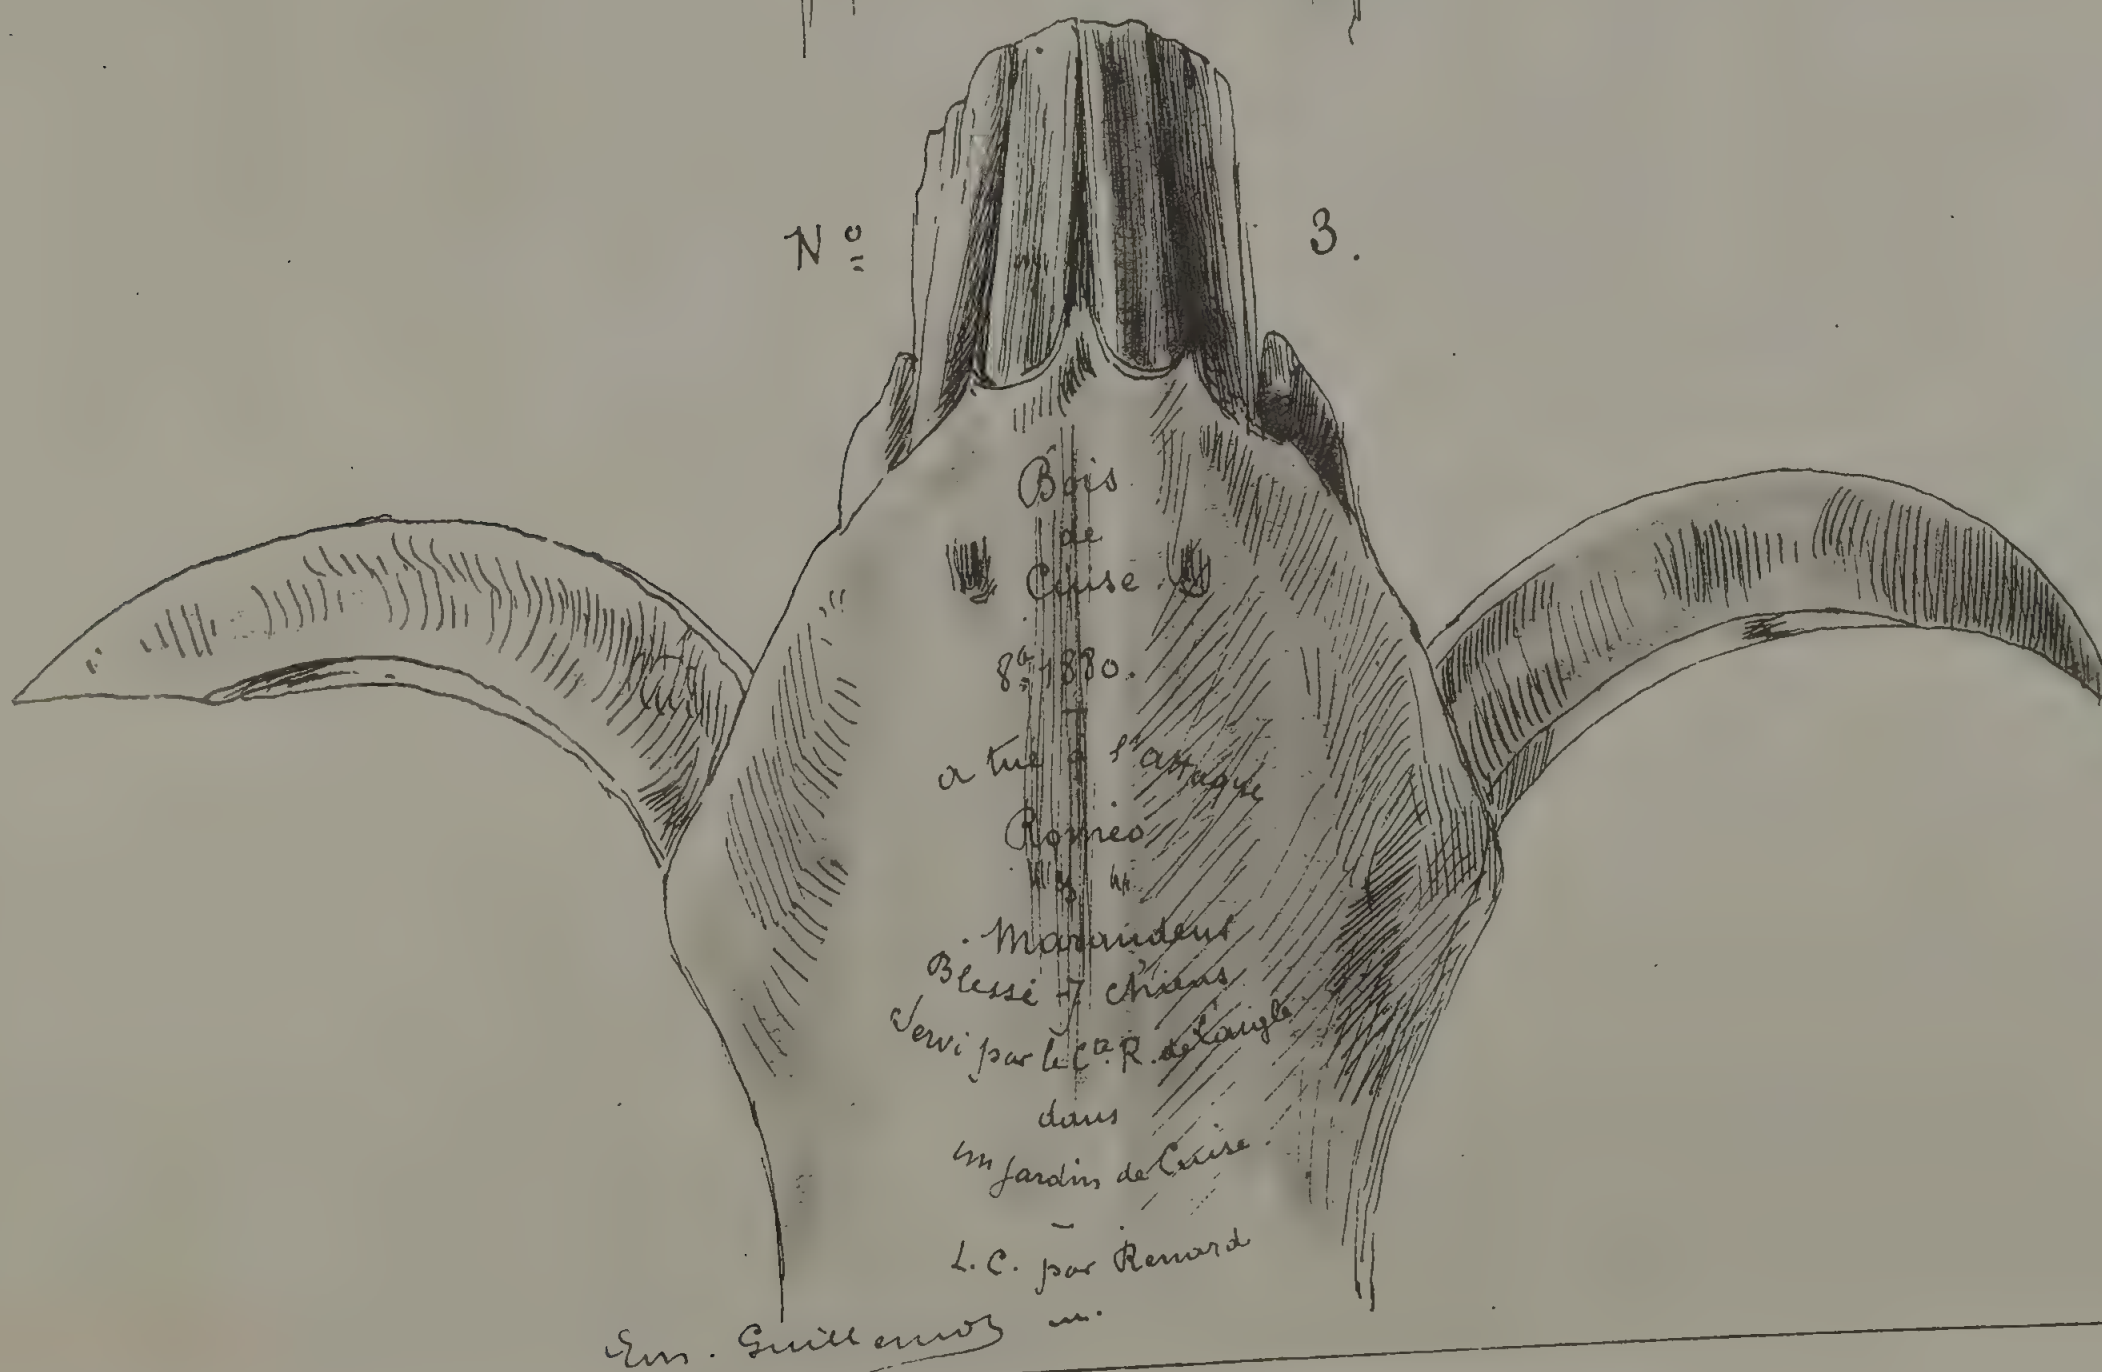 Nº 3.
Bois
de
Cuise.
8bre 1880.
a tué à l'attaque
Roméo
Maraudeur
Blessé 7 chiens
Servi par le Cte. R. de L'aigle
dans
un jardin de Cuise.
L. C. par Renard
Em. Guillemot